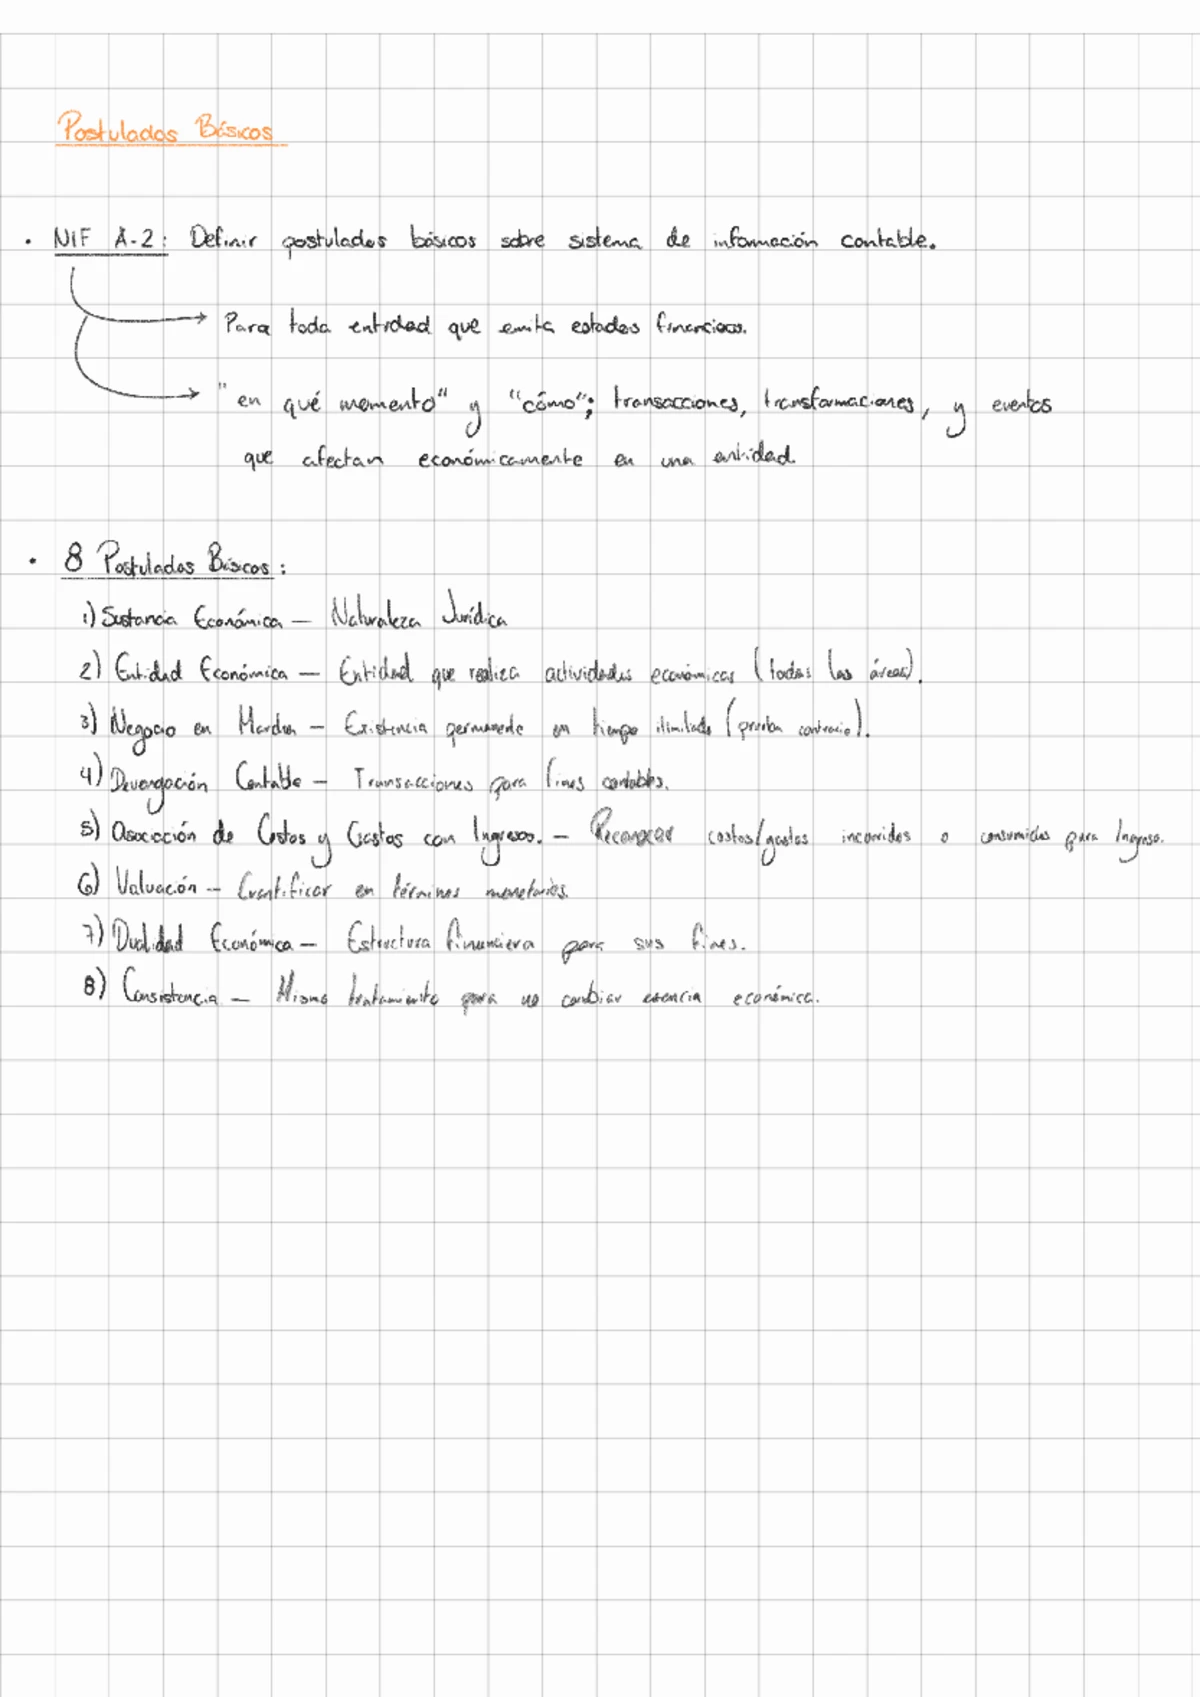 Postulados Básicos
• NIF A-2: Definir postulados básicos sobre sistema de información contable.
Para toda entidad que emita estados financieros.
"en qué momento" y "cómo"; transacciones, transformaciones, y eventos
que afectan económicamente en una entidad.
• 8 Postulados Básicos:
1) Sustancia Económica — Naturaleza Jurídica
2) Entidad Económica — Entidad que realiza actividades económicas (todas las áreas).
3) Negocio en Marcha — Existencia permanente en tiempo ilimitado (prueba contrario).
4) Devengación Contable — Transacciones para fines contables.
5) Asociación de Costos y Gastos con Ingresos. — Reconocer costos/gastos incorridos o consumidos para Ingreso.
6) Valuación — Cuantificar en términos monetarios.
7) Dualidad Económica — Estructura financiera para sus fines.
8) Consistencia — Mismo tratamiento para no cambiar esencia económica.